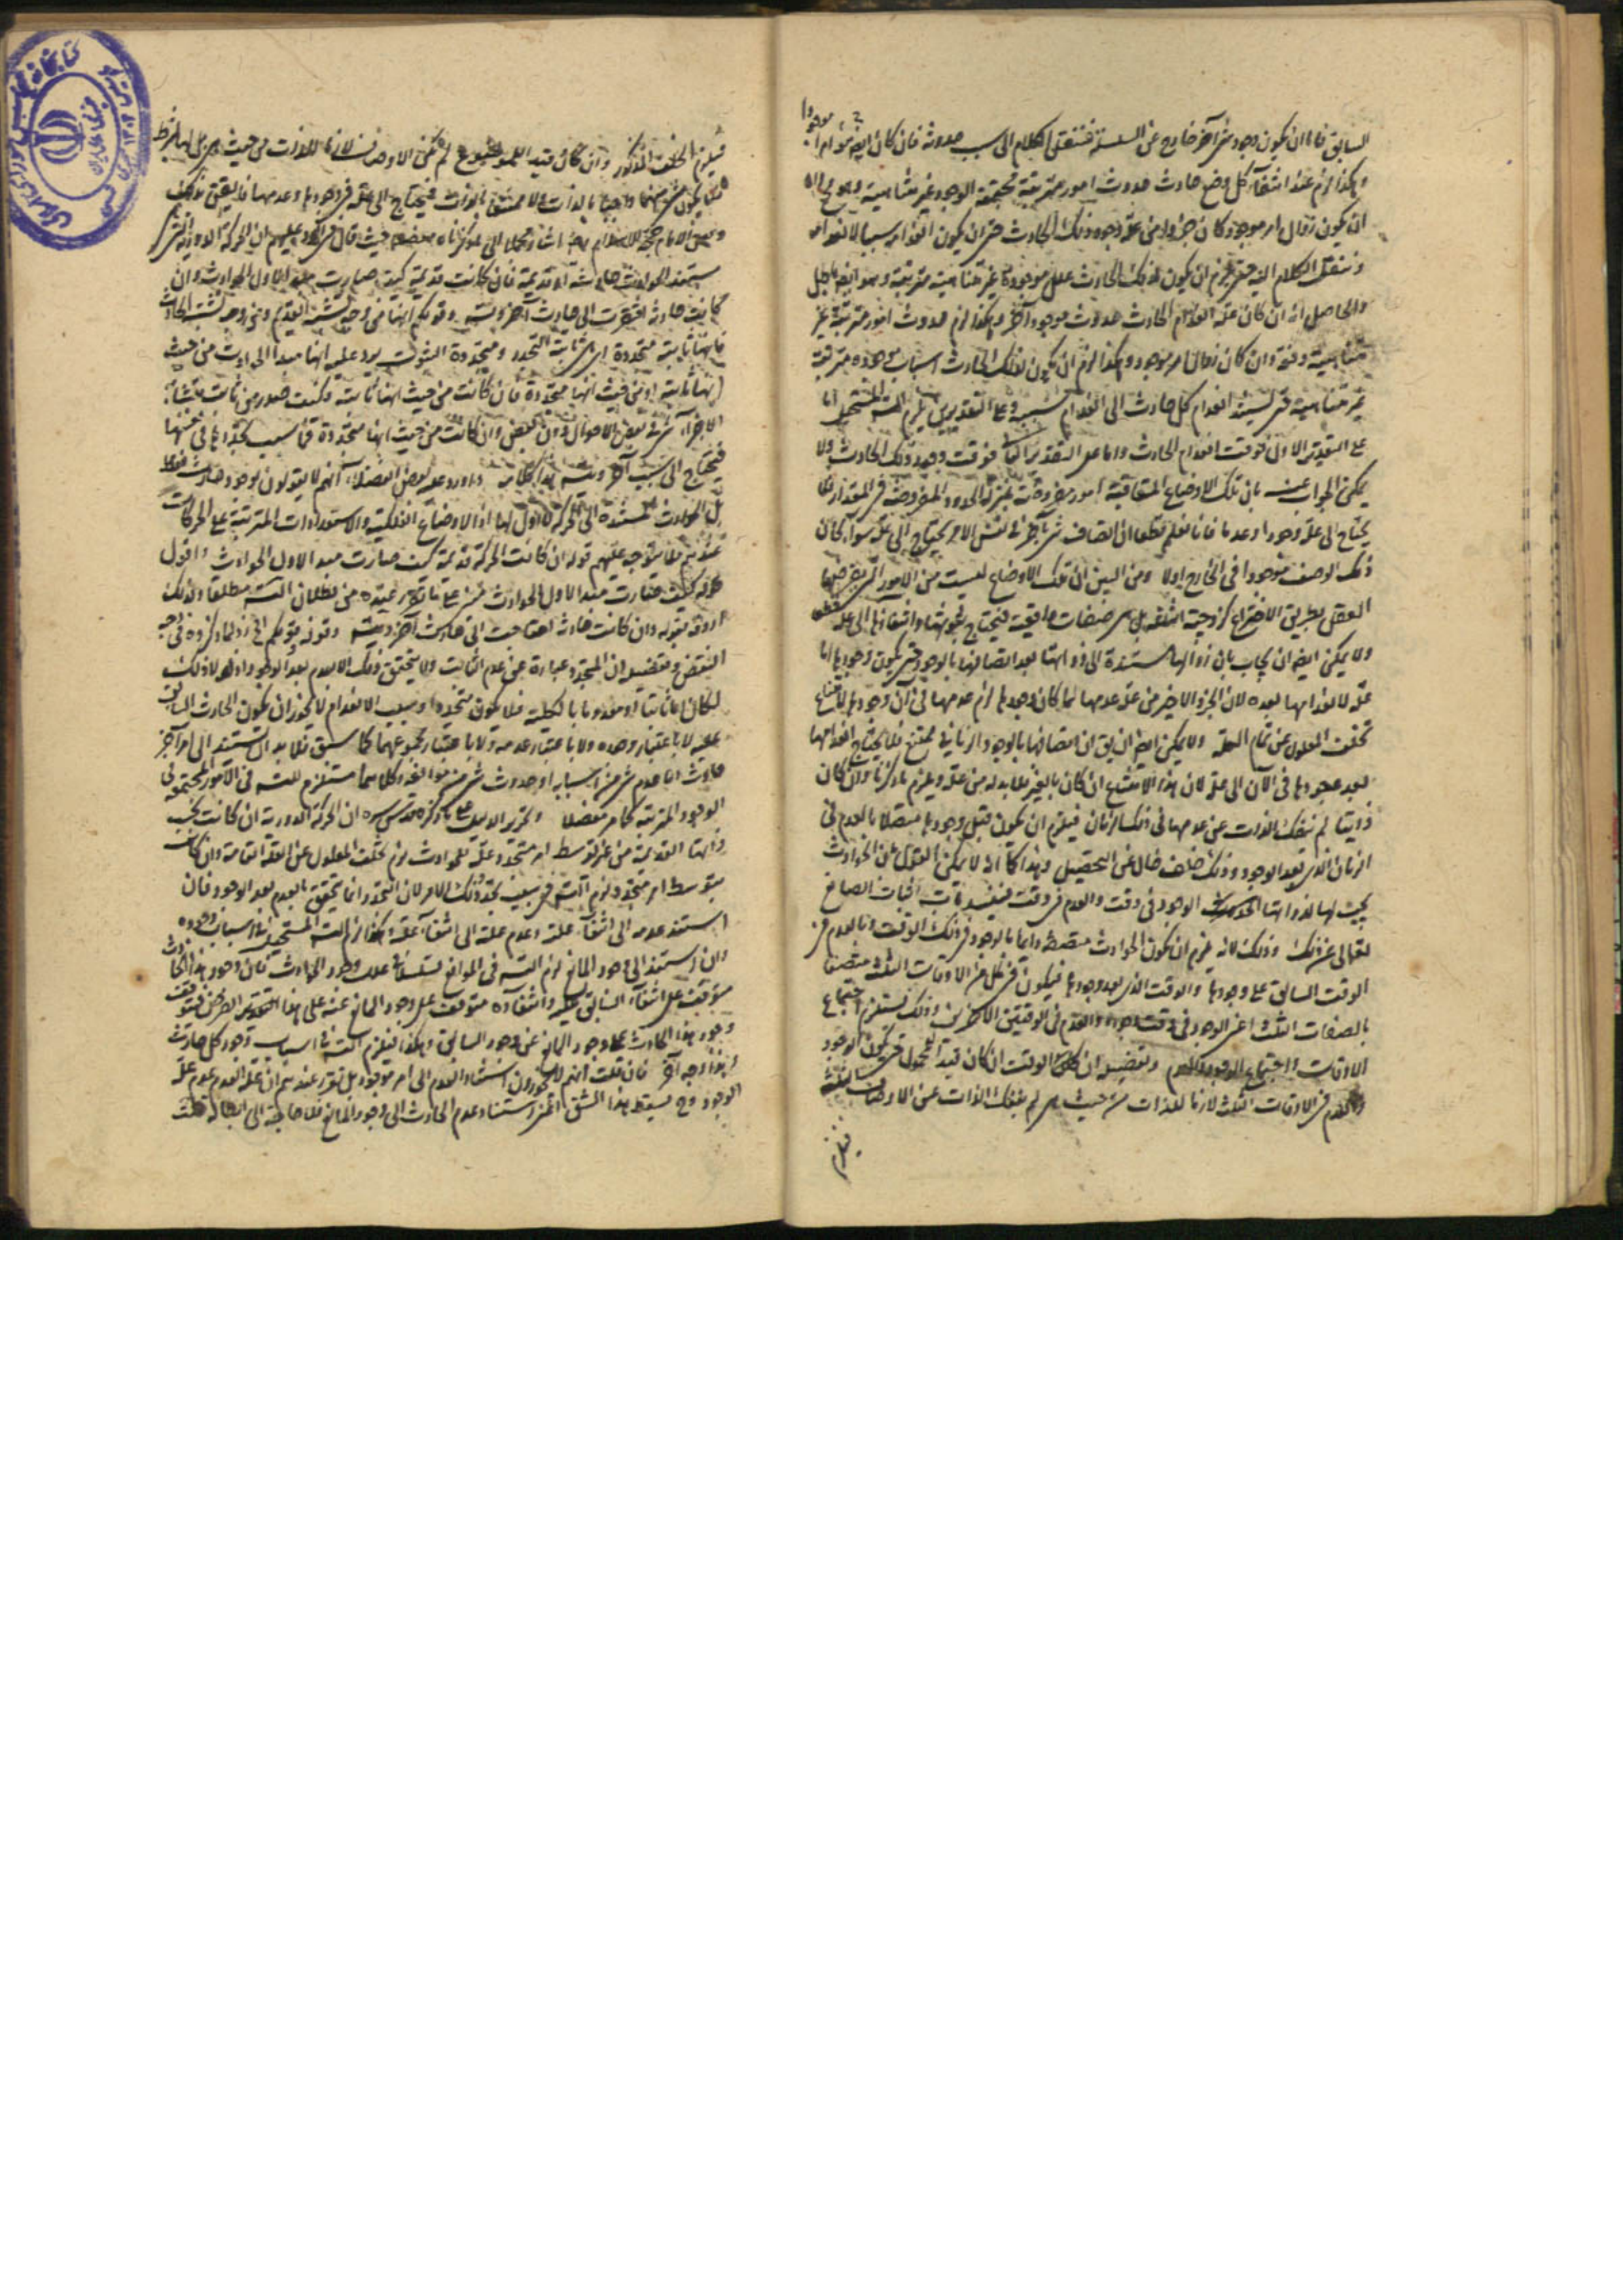 السابق فاما ان يكون وجود شئ آخر خارج عن السلسلة فننقل الكلام الى سبب حدوثه فان كان ايضا موجودا
وهكذا لزم عند انتفاء كل وضع حادث حدوث امور مترتبة مجتمعة الوجود غير متناهية وهو مح واما
ان يكون زوال امر موجود كان جزءا من علة وجود ذلك الحادث حتى ان يكون انعدامه سببا لانعدامه
وننقل الكلام اليه حتى يلزم ان يكون لذلك الحادث علل موجودة غير متناهية مترتبة وهو ايضا باطل
والحاصل انه ان كان علة انعدام الحادث حدوث موجود آخر وهكذا لزم حدوث امور مترتبة غير
متناهية دفعة وان كان زوال امر موجود وهكذا لزم ان يكون لذلك الحادث اسباب موجودة مترتبة
غير متناهية حتى يستند انعدام كل حادث الى انعدام سببه وعلى التقديرين يلزم التس المستحيل اما
على التقدير الاول فوقت انعدام الحادث واما على التقدير الثانى فوقت وجود ذلك الحادث ولا
يمكن الجواب عنه بان تلك الاوضاع المتعاقبة امور مفروضة بمنزلة الحدود المفروضة فى المقدار فلا
يحتاج الى علة وجودا وعدما فانا نعلم قطعا ان اتصاف شئ بآخر فى نفس الامر يحتاج الى علة سواء كان
ذلك الوصف موجودا فى الخارج اولا ومن البين ان تلك الاوضاع ليست من الامور التى يفرضها
العقل بطريق الاختراع كزوجية الثلثة بل هى صفات واقعية فيحتاج ثبوتها وانتفاؤها الى علة قطعا
ولا يمكن ايضا ان يجاب بان زوالها مستندة الى ذواتها بعد اتصافها بالوجود حتى يكون وجودها
علة لانعدامها بعده لان الجزء الاخير من علة عدمها لما كان وجودها لزم عدمها فى آن وجودها لامتناع
تخلف المعلول عن تمام العلة ولا يمكن ايضا ان يق ان اتصافها بالوجود الزمانى ممتنع فلا يحتاج انعدامها
بعد وجودها فى الآن الى علة لان هذا الامتناع ان كان بالغير فلا بد له من علة ويلزم ما ذكرنا وان كان
ذاتيا لم ينفك الذات عن عدمها فى ذلك الزمان فيلزم ان يكون قبل وجودها متصلا بالعدم فى
الزمان الذى بعد الوجود وذلك خلف خال عن التحصيل وهذا كما انه لا يمكن القول بان الحوادث
يجب لها لذواتها الوجود فى وقت والعدم فى وقت فينسد باب اثبات الصانع
تعالى عن ذلك وذلك لانه يلزم ان يكون الحوادث متصفة دايما بالوجود فى ذلك الوقت وبالعدم فى
الوقت السابق على وجودها والوقت الذى بعد وجودها فيكون فى كل من الاوقات الثلثة متصفا
بالصفات الثلث اعنى الوجود فى وقت وجوده والعدم فى الوقتين الآخرين وذلك يستلزم اجتماع
الاوقات واجتماع الوجود والعدم وتفصيله ان كلمة الوقت ان كان قيد المحمول حتى يكون الوجود
والعدم فى الاوقات الثلث لازما للذات من حيث هى لم ينفك الذات عن الاوصاف الثلثة
فيلزم
فيلزم الخلف المذكور وان كان قيد الموضوع لم يكن الاوصاف لازما للذات من حيث هى بل لها بشرط
فلا يكون شئ منهما واجبا بالذات ولا ممتنع بالذات فيحتاج الى علة فى وجودها وعدمها فليتحقق ذلك
وبعض الامام حجة الاسلام اشار مجملا الى ما ذكرناه مفصلا حيث قال فى الرد عليهم ان الحركة الدورية التى
مستند الحوادث حادثة او قديمة فان كانت قديمة كيف صارت مبدا لاول الحوادث وان
كانت حادثة افتقرت الى حادث آخر ويتس وقولكم انها من وجه تشبه القديم ومن وجه تشبه الحادث
فانها ثابتة متجددة اى ثابتة التجدد ومتجددة الثبوت يرد عليه انها مبدا الحوادث من حيث
انها ثابتة او من حيث انها متجددة فان كانت من حيث انها ثابتة فكيف صدر من ثابت متشابه
الاجزاء شئ فى بعض الاحوال دون بعض وان كانت من حيث انها متجددة فما سبب تجددها فى نفسها
فيحتاج الى سبب آخر ويتس هذا كلامه واورد عليه بعض الفضلاء انهم لا يقولون بوجود حادث هو اول
بل الحوادث مستندة الى الحركة لا اول لها اذ الاوضاع الفلكية والاستعدادات المترتبة على الحركات
عندهم فلا يتوجه عليهم قوله ان كانت الحركة قديمة كيف صارت مبدا لاول الحوادث واقول
قوله كيف صارت مبدا لاول الحوادث مبنى على ما تقرر عنده من بطلان التس مطلقا ولذلك
اردفه بقوله وان كانت حادثة احتاجت الى حادث آخر ويتس وقوله وقولكم الخ زوال ما ذكروه فى وجه
النقض وتفصيله ان التجدد عبارة عن عدم الثابت ولا يتحقق ذلك الا بعدم بعد الوجود اذ لولا ذلك
لكان اما ثابتا او معدوما بالكلية فلا يكون متجددا وسبب الانعدام لا يجوز ان يكون الحادث السابق
عليه لا باعتبار وجوده ولا باعتبار عدمه ولا باعتبار مجموعهما كما سبق فلا بد ان يستند الى امر آخر
حادث اما عدم شئ من اسبابه او حدوث شئ من موانعه وكلاهما مستلزم للتس فى الامور المجتمعة فى
الوجود المترتبة كما مر مفصلا وتقرير الدليل على ما ذكره قدس سره ان الحركة الدورية ان كانت بحسب
ذاتها القديمة من غير توسط امر متجدد علة للحوادث لزم تخلف المعلول عن العلة التامة وان كانت
بتوسط امر متجدد لزم التس فى سبب تجدد ذلك الامر لان التجدد انما يتحقق بالعدم بعد الوجود فان
استند عدمه الى انتفاء علته وعدم علته الى انتفاء علته وهكذا لزم التس المستحيل فى اسباب وجوده
وان استند الى وجود المانع لزم التس فى الموانع
يتوقف على انتفاء السابق عليه وانتفاؤه متوقف على وجود المانع عنه على هذا التقدير
وجود هذا الحادث على وجود المانع عن وجود السابق وهكذا فيلزم التس فى اسباب وجود كل حادث
وهذا وجه آخر فان قلت انهم لا يجوزون استناد العدم الى امر موجود بل تقرر عندهم ان علة العدم عدم علة
الوجود وح يسقط هذا الشق اعنى استناد عدم الحادث الى وجود المانع فلا حاجة الى ابطاله قلت